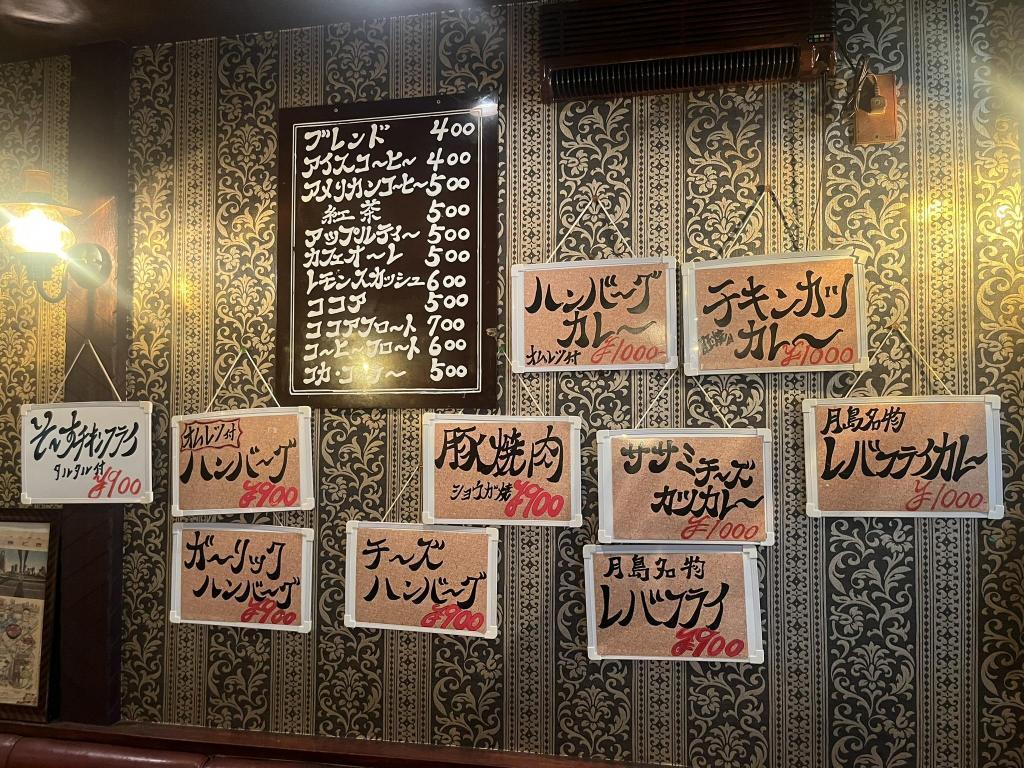 ブレンド 400
アイスコーヒー 400
アメリカンコーヒー 500
紅茶 500
アップルティー 500
カフェオーレ 500
レモンスカッシュ 600
ココア 500
ココアフロート 700
コーヒーフロート 600
コカ・コーラー 500
ハンバーグ
カレー
オムレツ付 ¥1000
チキンカツ
カレー
¥1000
そーすチキンフライ
タルタル付
¥900
オムレツ付
ハンバーグ
¥900
豚焼肉
ショウガ焼 ¥900
ササミチーズ
カツカレー
¥1000
月島名物
レバフライカレー
¥1000
ガーリック
ハンバーグ
¥900
チーズ
ハンバーグ
¥900
月島名物
レバフライ
¥900